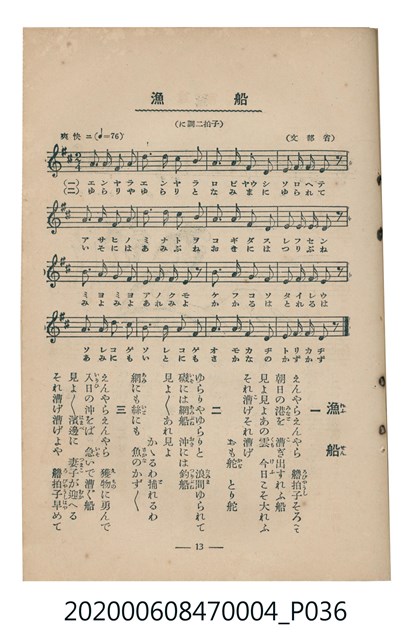 漁船
(に調二拍子)
爽快ニ(♩=76)
(文部省)
(一) エンヤラエンヤラ ロビヤウシ ソロヘテ
(二) ゆらりやゆらりと なみまに ゆられて
アサヒノミナトヲ コギダスレフセン
いそにはあみぶね おきにはつりぶね
ミヨミヨアノクモ ケフコソタイレウ
みよみよあれみよ かゝるはとれるわ
ソレコゲソレコゲ オモカヂトリカヂ
あみにもいとにも さかなのかずかず
漁船
一
えんやらえんやら 艪拍子そろへて
朝日の港を 漕ぎ出すれふ船
見よ見よあの雲 今日こそ大れふ
それ漕げそれ漕げ おも舵 とり舵
二
ゆらりやゆらりと 浪間にゆられて
磯には網船 沖には釣船
見よ〱あれ見よ かゝるわ捕れるわ
網にも絲にも 魚のかず〱
三
えんやらえんやら 獲物に勇んで
入日の沖をば 急いで漕ぐ船
見よ〱濱邊に 妻子が迎へる
それ漕げ漕げよや 艪拍子早めて
— 13 —
202000608470004_P036